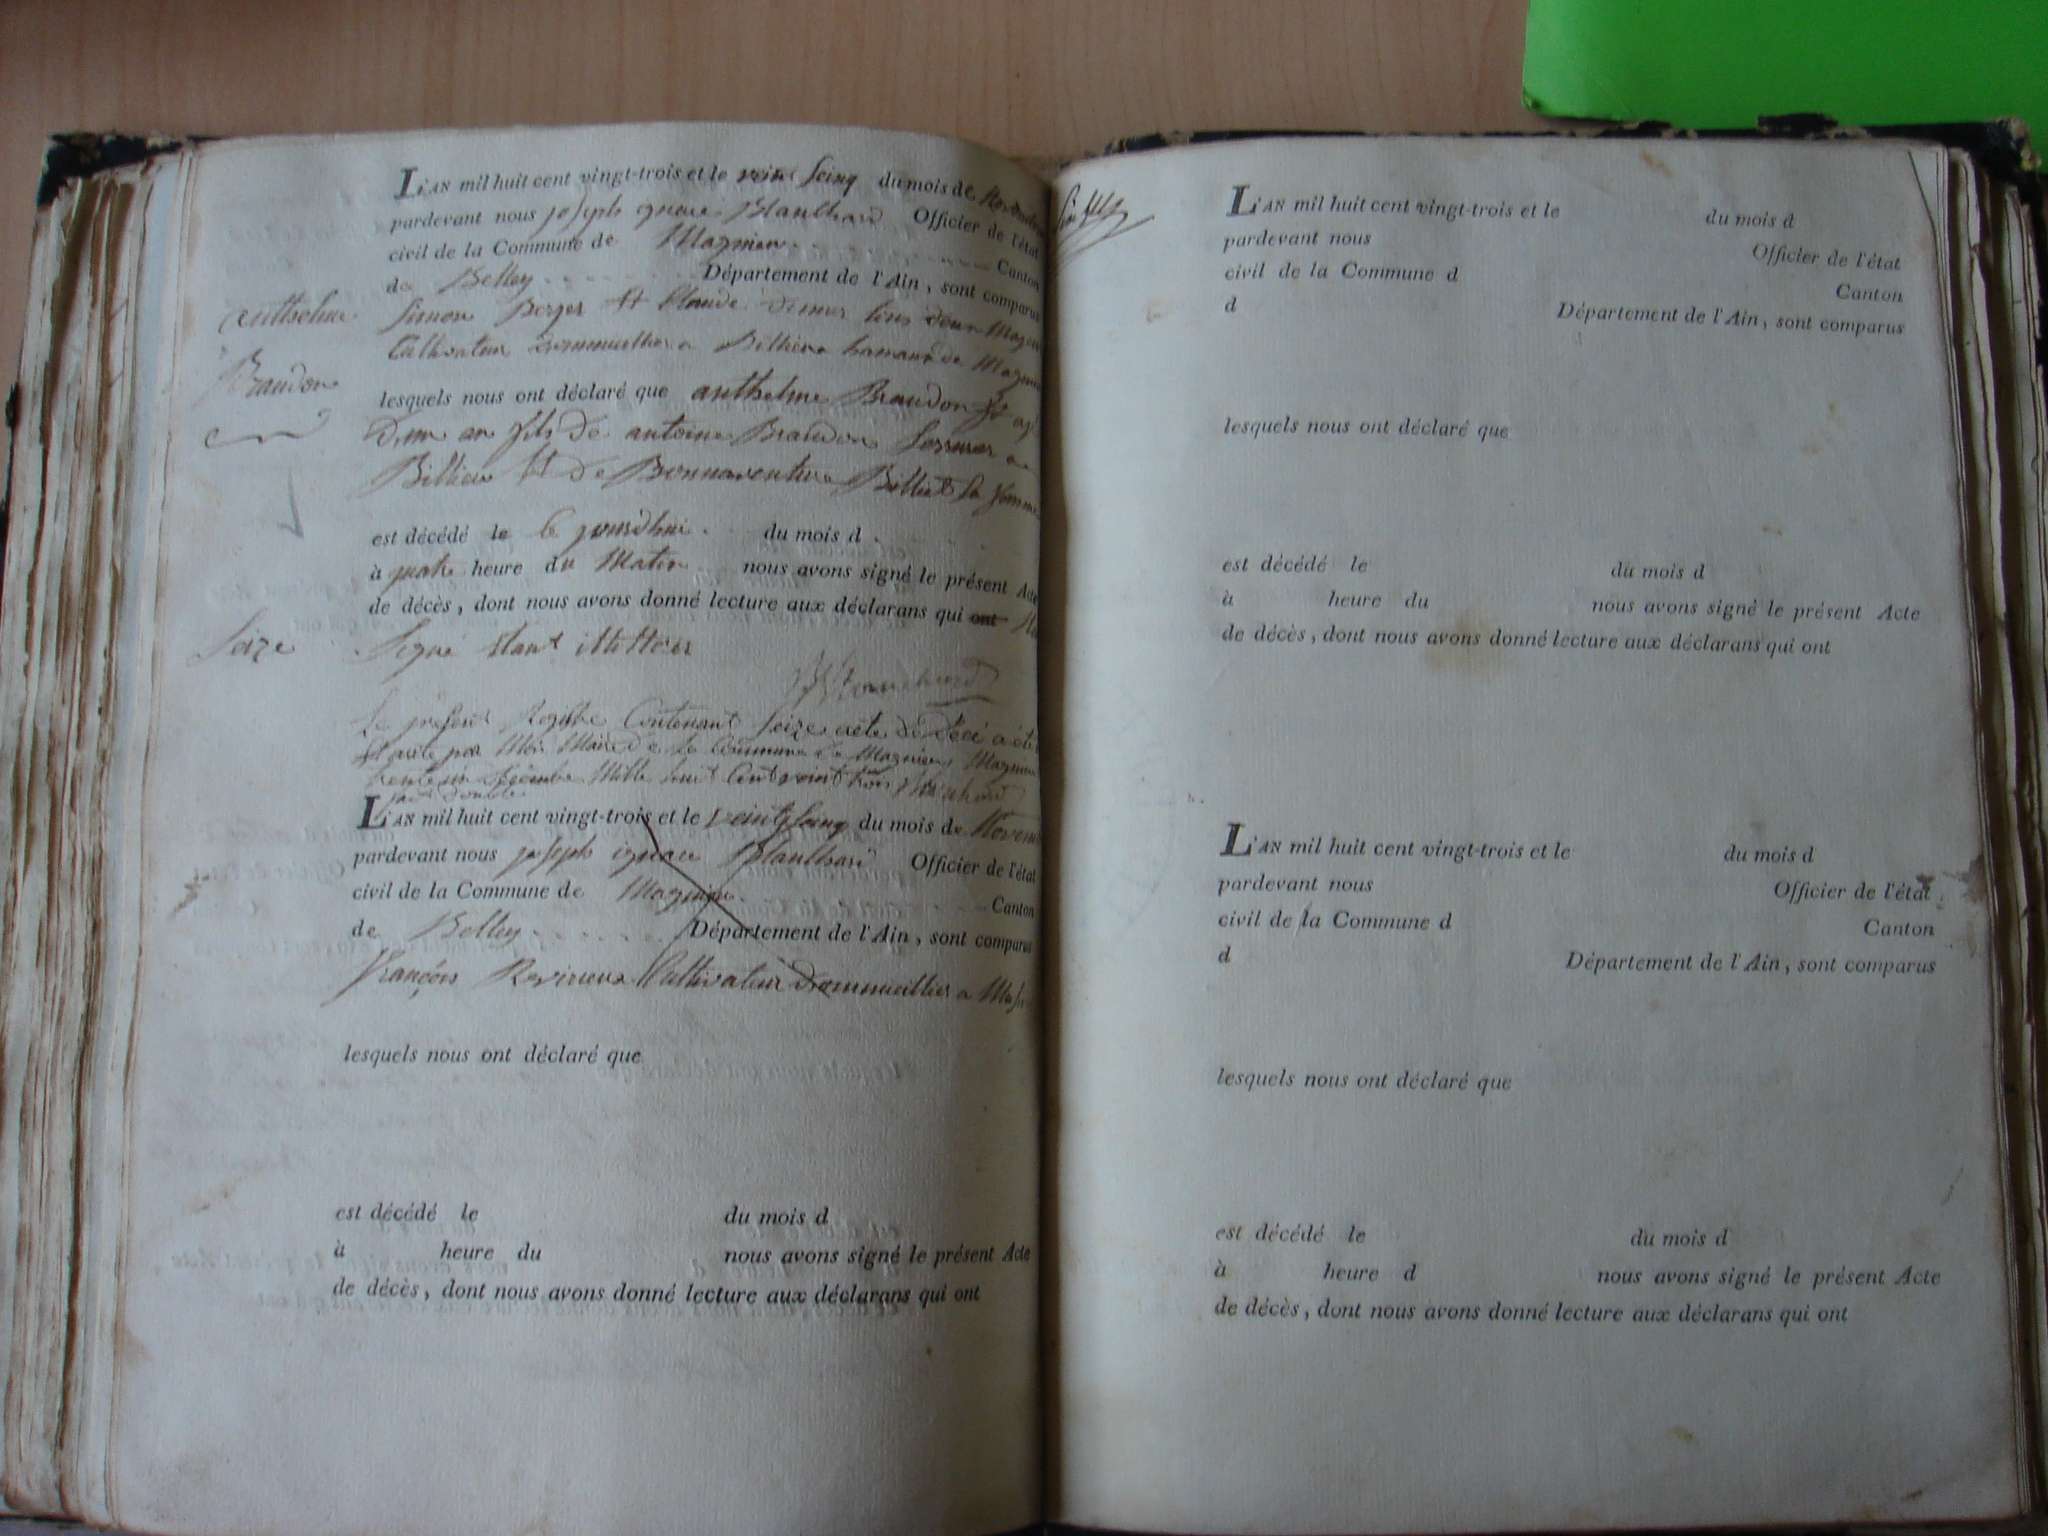 L'AN mil huit cent vingt-trois et le veint seinq du mois de Novembre
pardevant nous joseph ignace Blanchard Officier de l'état
civil de la Commune de Magnieu Canton
de Belley Département de l'Ain, sont comparus
Simon Berger et Claude
Cultivateur a Billieu hamaux de Magnieu
anthelme
Braudon
lesquels nous ont déclaré que anthelme Braudon agé
Dun an fils De antoine Braudon a
Billieu et De Bonnaventure Billiet Sa femme
est décédé le ce jourdhui du mois d
à quatre heure du Matin nous avons signé le présent Acte
de décès, dont nous avons donné lecture aux déclarans qui ont
Seize
Signé étant illettrés
Blanchard
Le present Registre Contenant Seize acte de décé a été
par Moi Maire De la Commune de Magnieu Magnieu
trente un décembre Mille huit Cent veint trois Blanchard
L'AN mil huit cent vingt-trois et le veint seinq du mois de Novem
pardevant nous joseph ignace Blanchard Officier de l'état
civil de la Commune de Magnieu Canton
de Belley Département de l'Ain, sont comparus
François Cultivateur a
lesquels nous ont déclaré que
est décédé le du mois d
à heure du nous avons signé le présent Acte
de décès, dont nous avons donné lecture aux déclarans qui ont
L'AN mil huit cent vingt-trois et le du mois d
pardevant nous Officier de l'état
civil de la Commune d Canton
d Département de l'Ain, sont comparus
lesquels nous ont déclaré que
est décédé le du mois d
à heure du nous avons signé le présent Acte
de décès, dont nous avons donné lecture aux déclarans qui ont
L'AN mil huit cent vingt-trois et le du mois d
pardevant nous Officier de l'état
civil de la Commune d Canton
d Département de l'Ain, sont comparus
lesquels nous ont déclaré que
est décédé le du mois d
à heure d nous avons signé le présent Acte
de décès, dont nous avons donné lecture aux déclarans qui ont